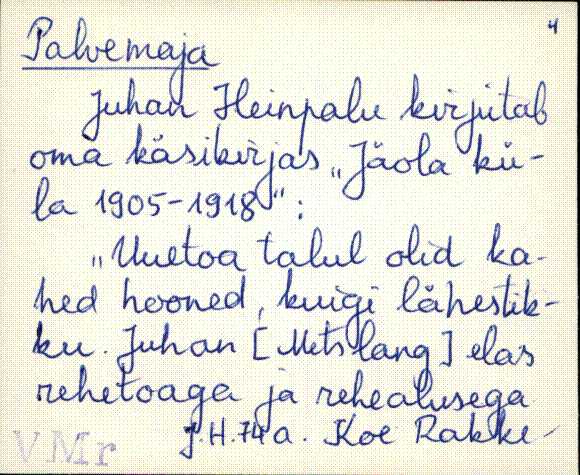 4
Palvemaja
Juhan Heinpalu kirjutab
oma käsikirjas „Jäola kü-
la 1905-1918":
„Uuetoa talul olid ka-
hed hooned, kuigi lähestik-
ku. Juhan [Metslang] elas
rehetoaga ja rehealusega
J.H.74a. Koe Rakke
VMr